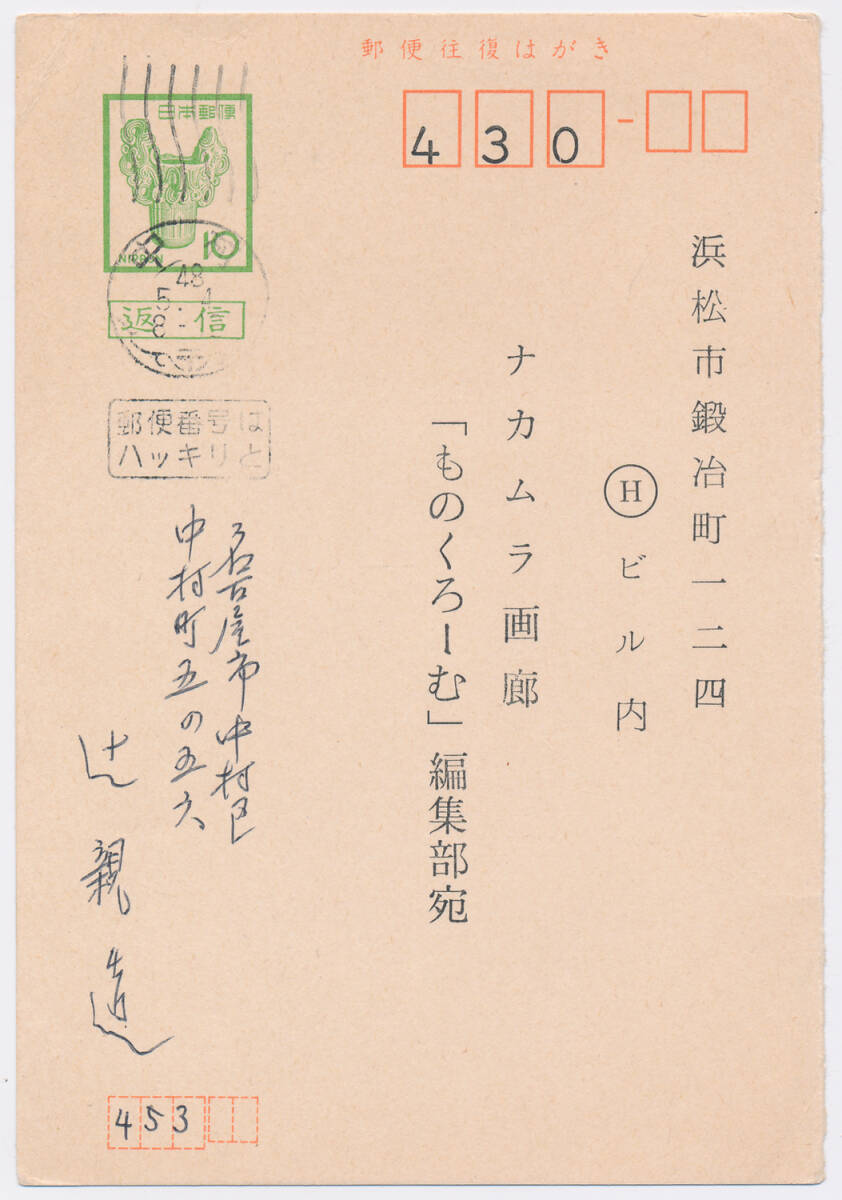 郵便往復はがき
430
日本郵便
10
NIPPON
48
5.
8-
返信
郵便番号は
ハッキリと
浜松市鍛冶町一二四
Ⓗビル内
ナカムラ画廊
「ものくろーむ」編集部宛
名古屋市中村区
中村町五の五六
辻親
453